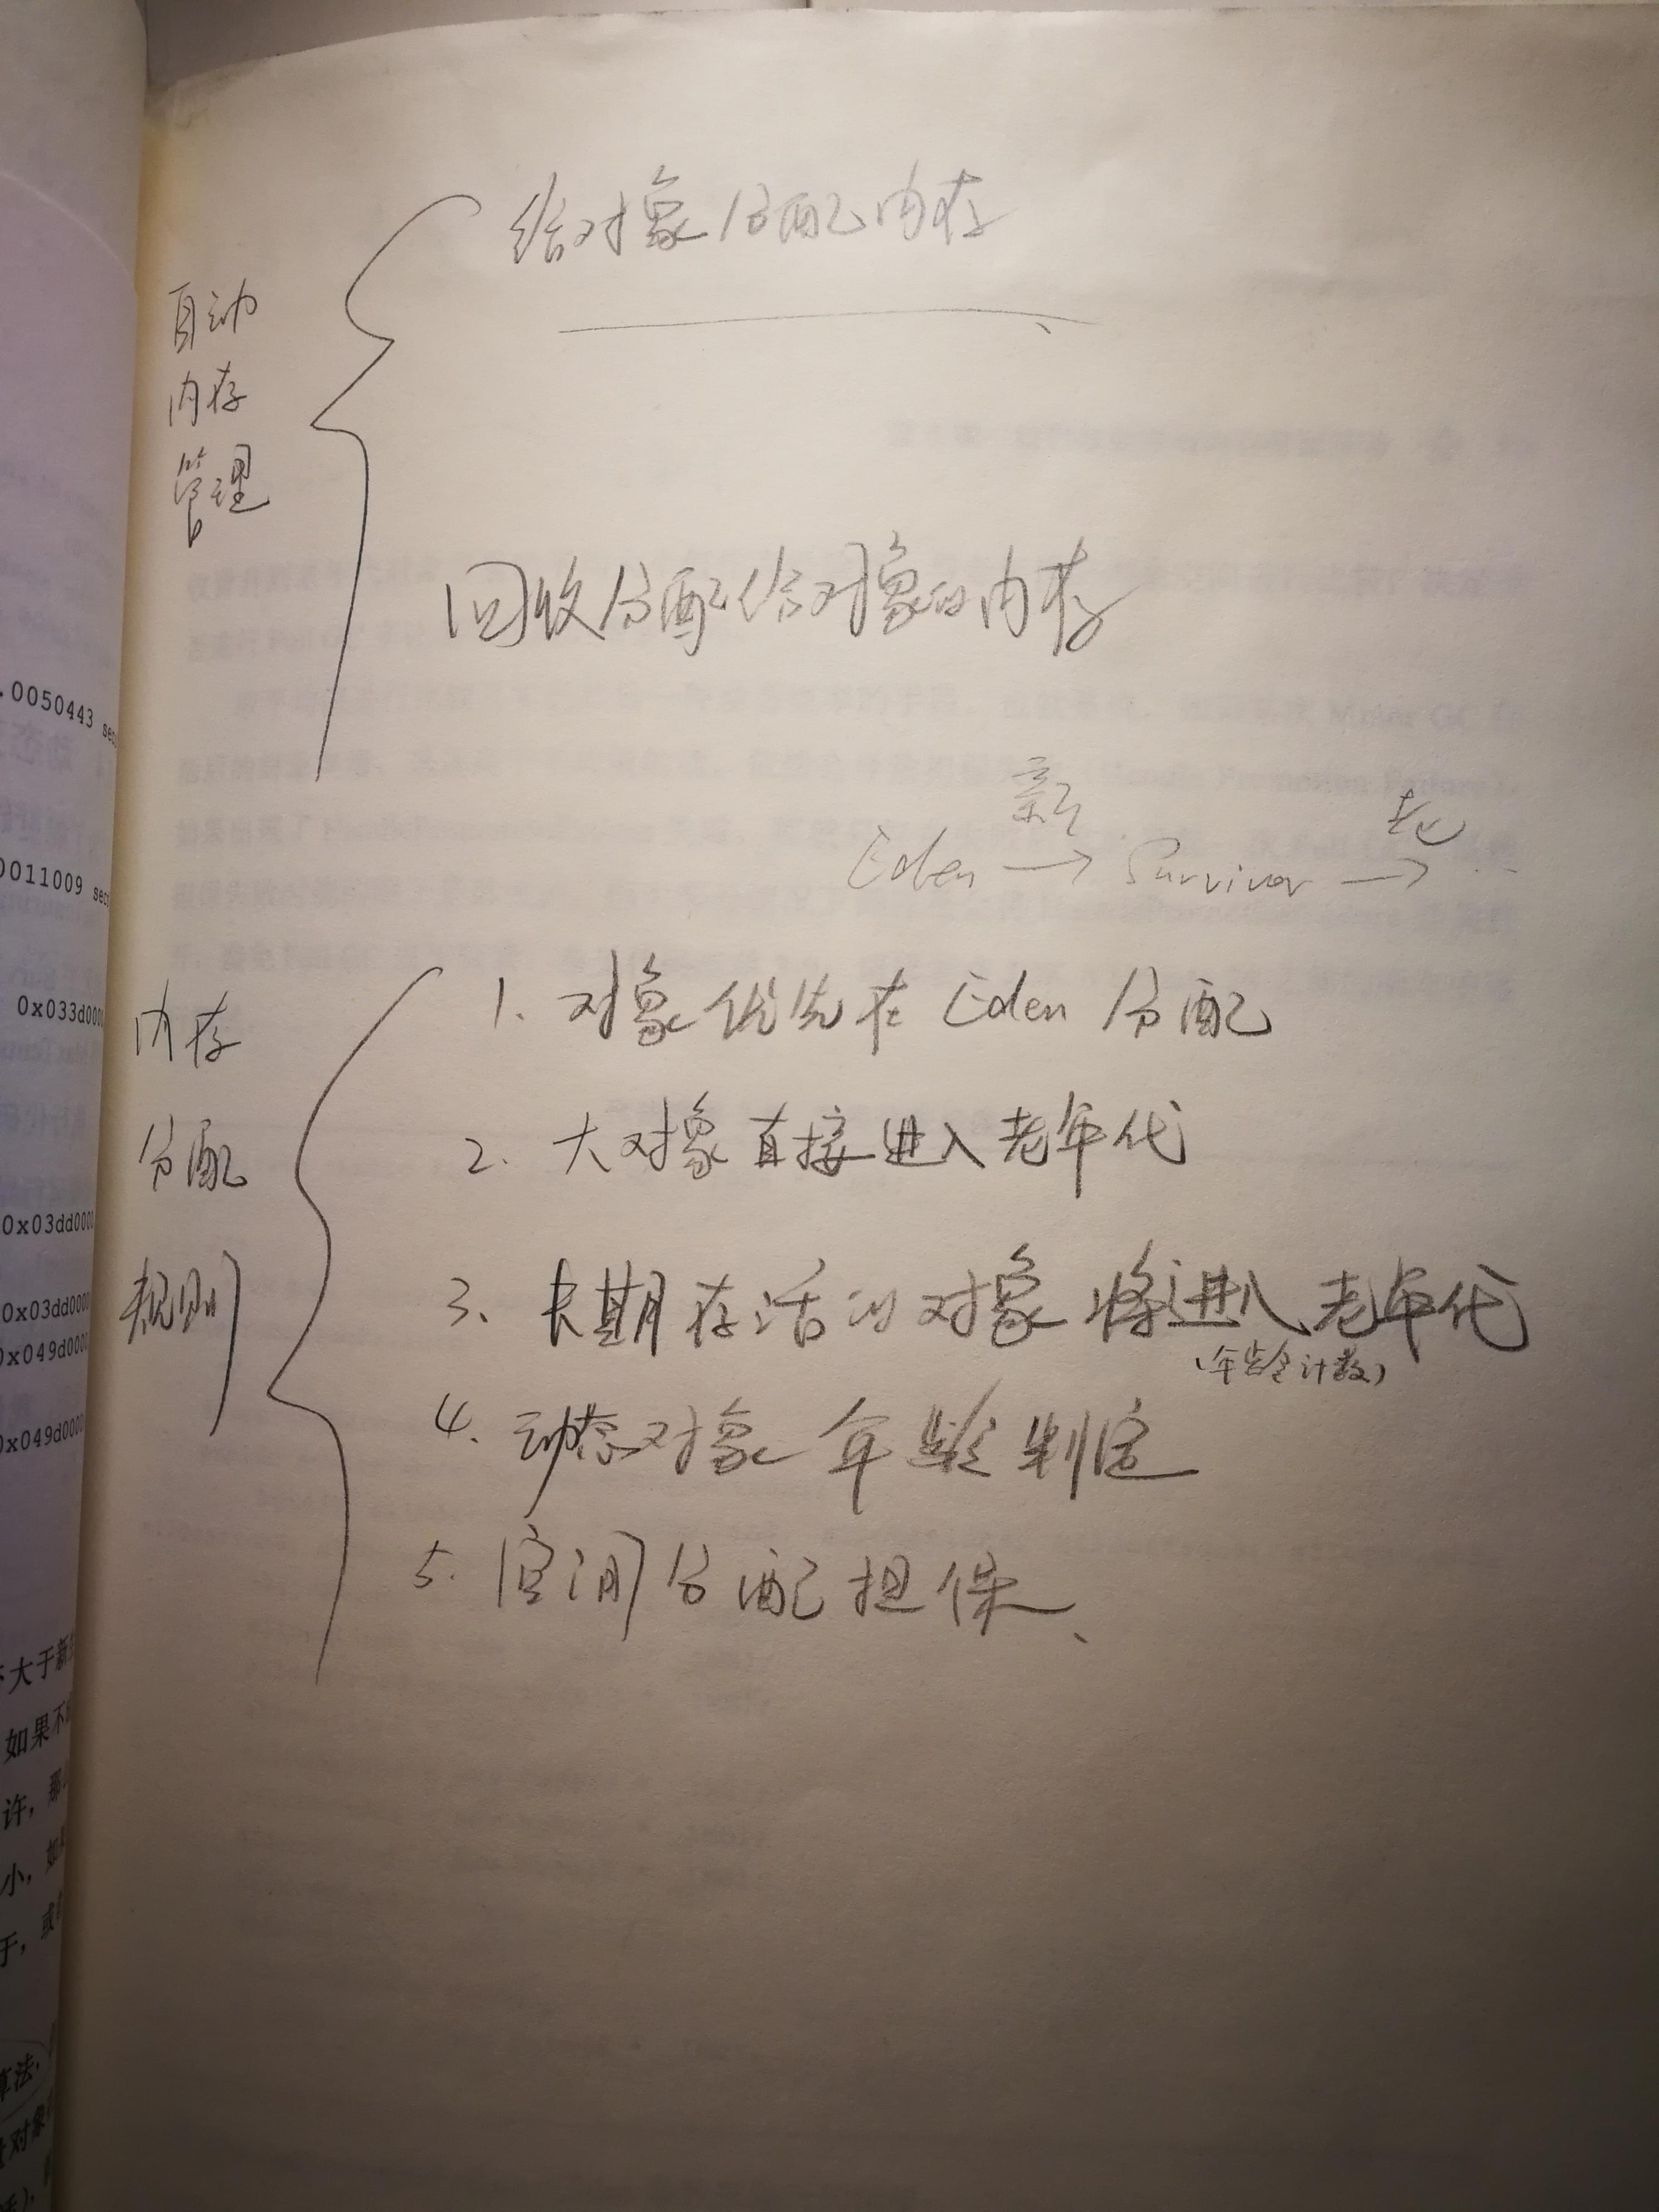 给对象分配内存
自动
内存
管理
回收分配给对象的内存
新 老
Eden → Survivor → ..
内存
分配
规则
1. 对象优先在 Eden 分配
2. 大对象直接进入老年代
3. 长期存活的对象将进入老年代
(年龄计数)
4. 动态对象年龄判定
5. 空间分配担保、
.0050443 sec
0011009 sec
0x033d000
0x03dd000
0x03dd000
0x049d000
0x049d000
大于新
如果不
许，那
小，如
于，或
算法
对象